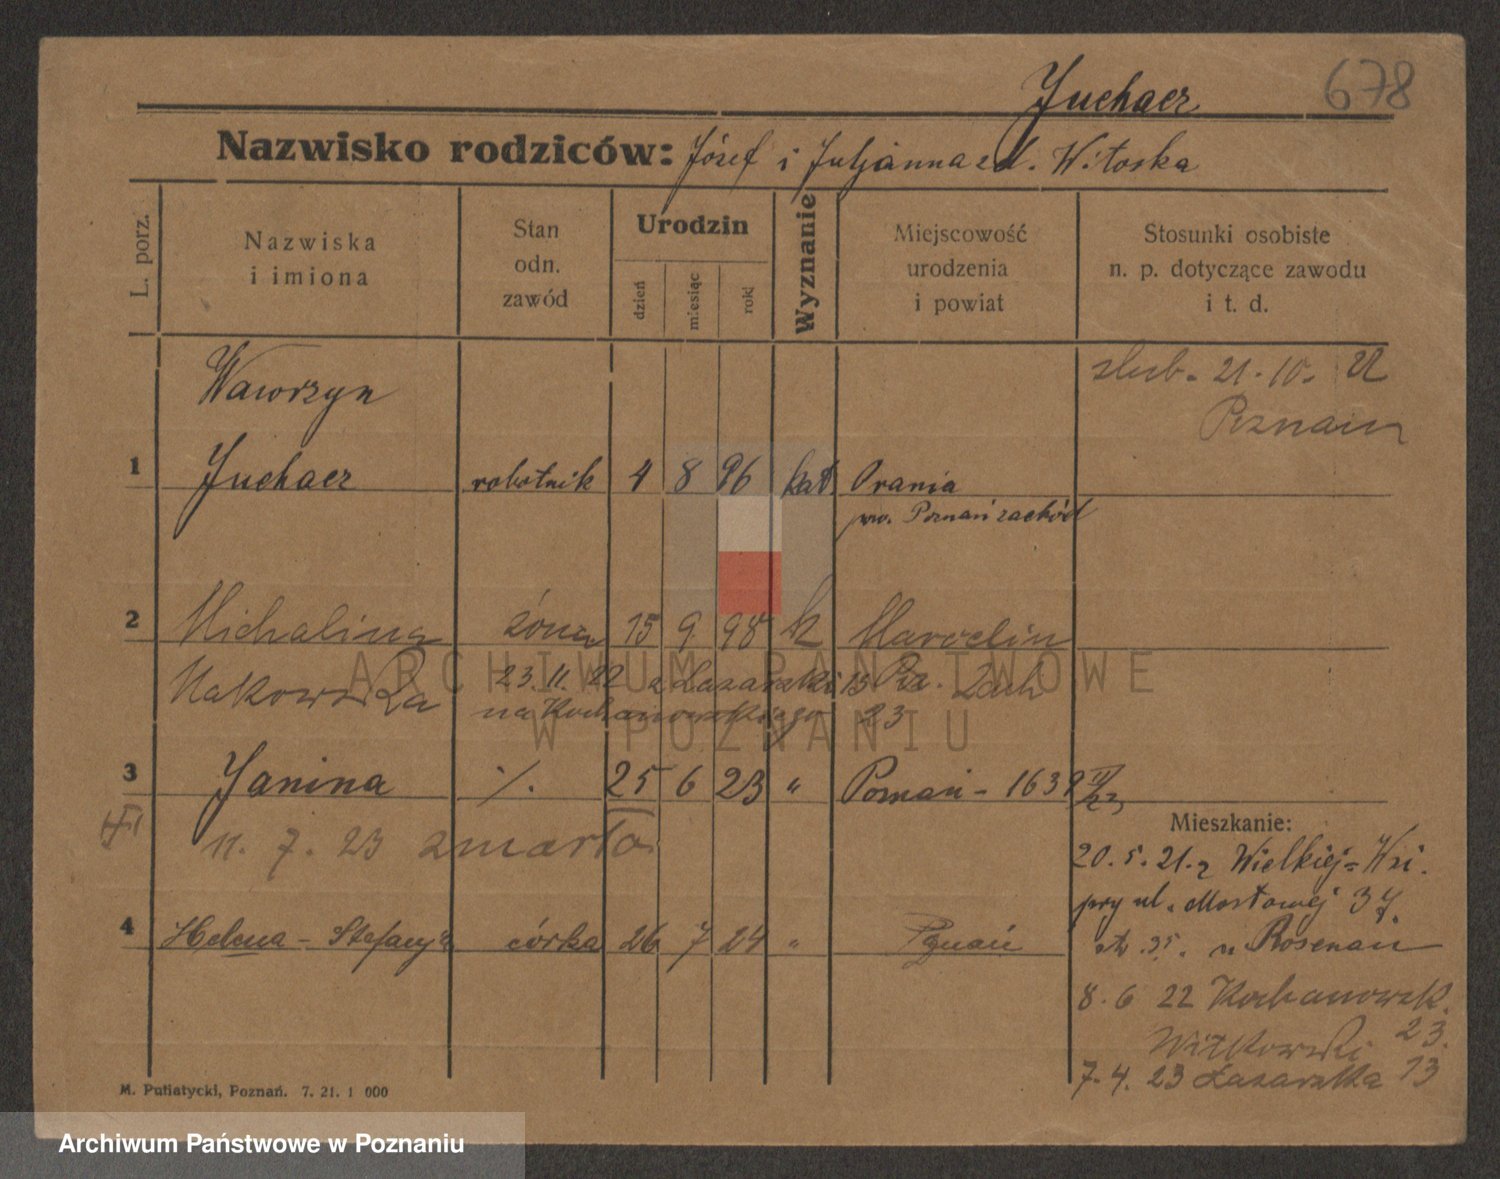 Juchacz 678
Nazwisko rodziców: Józef i Juljanna zd. Witoska
L. porz.
Nazwiska
i imiona
Stan
odn.
zawód
Urodzin
dzień
miesiąc
rok
Wyznanie
Miejscowość
urodzenia
i powiat
Stosunki osobiste
n. p. dotyczące zawodu
i t. d.
Wawrzyn
ślub. 21. 10. 22
Poznań
1 Juchacz robotnik 4 8 96 kat. Orania
pw. Poznań zachód
2 Michalina żona 15 9 98 k Marcelin
Makowska 23. 11. 22 z Łazarski 13 Poz. Zach
na Kochanowskiego 23
3 Janina ./. 25 6 23 " Poznań - 1639
11. 7. 23 zmarła
Mieszkanie:
20. 5. 21. z Wielkiej-Wsi.
przy ul. Mostowej 37.
4 Helena - Stefanja córka 26 7 24 " Poznań
u Rosenau
8. 6 22 Kochanowsk.
23.
Witkowski
7. 4. 23 Łazarska 13
M. Putiatycki, Poznań. 7. 21. 1 000
ARCHIWUM PAŃSTWOWE
W POZNANIU
Archiwum Państwowe w Poznaniu